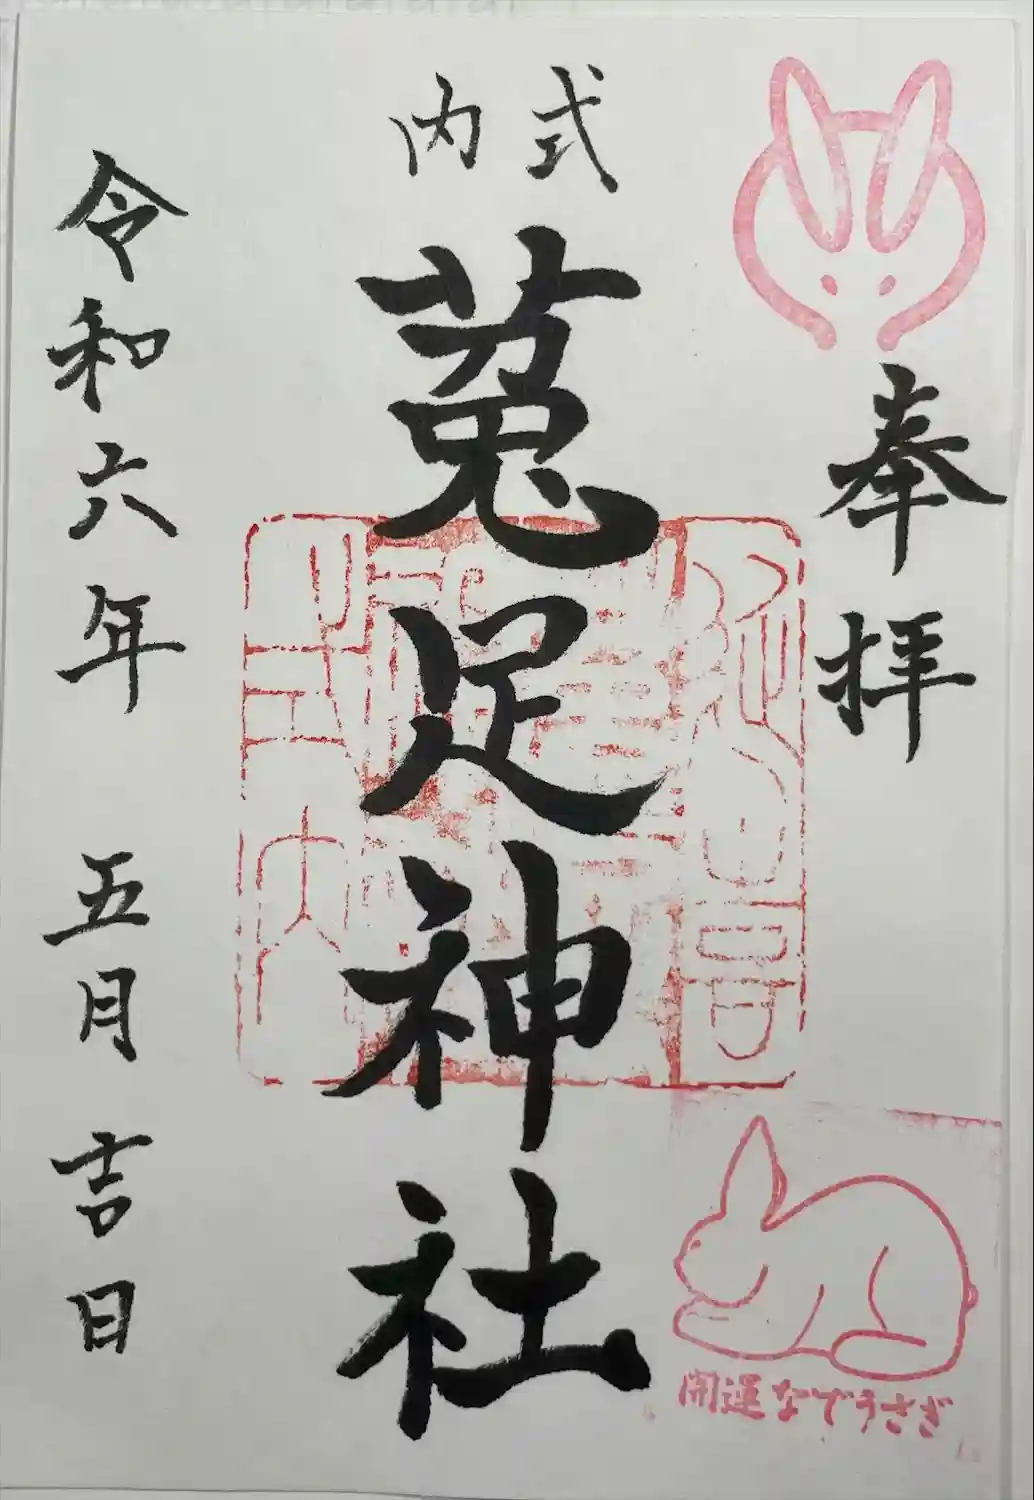 奉拝
式内
菟足神社
令和六年 五月 吉日
開運なでうさぎ